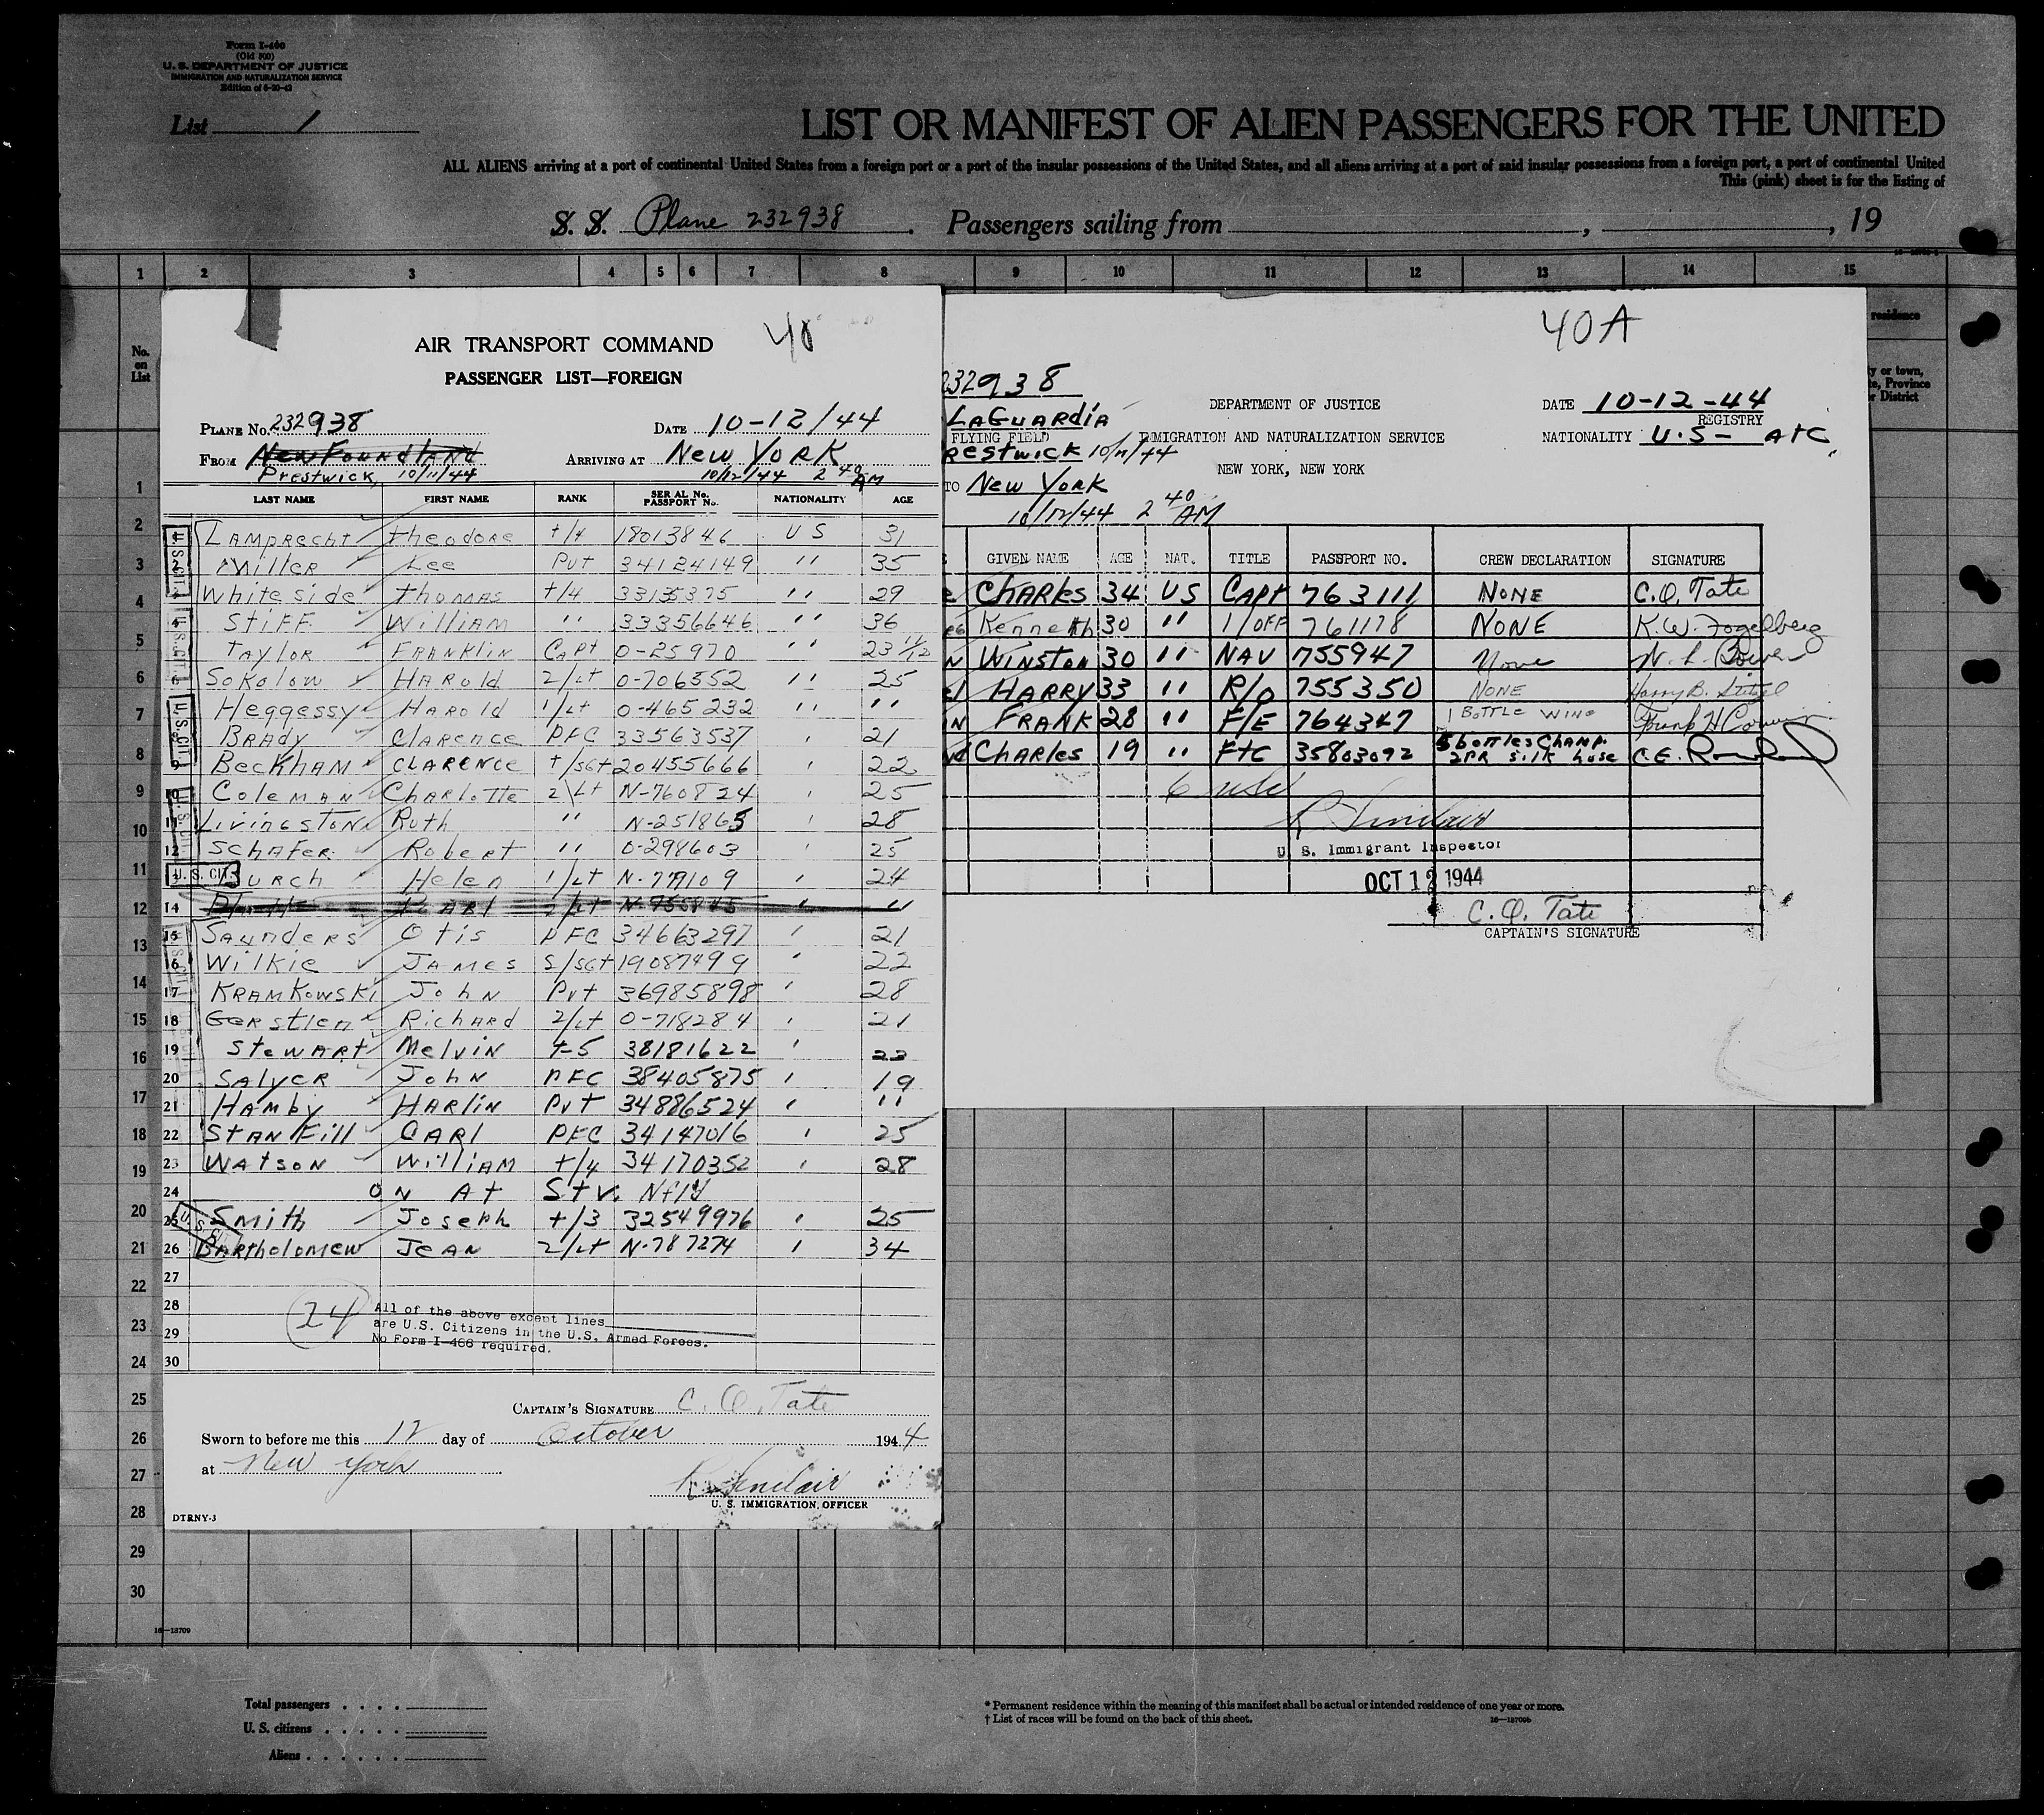 Form I-400
(Old 500)
U. S. DEPARTMENT OF JUSTICE
IMMIGRATION AND NATURALIZATION SERVICE
Edition of 6-20-43
List 1
LIST OR MANIFEST OF ALIEN PASSENGERS FOR THE UNITED
ALL ALIENS arriving at a port of continental United States from a foreign port or a port of the insular possessions of the United States, and all aliens arriving at a port of said insular possessions from a foreign port, a port of continental United
This (pink) sheet is for the listing of
S. S. Plane 232938 . Passengers sailing from , , 19
1 2 3 4 5 6 7 8 9 10 11 12 13 14 15
No. on List
residence
y or town,
te, Province
r District
40
AIR TRANSPORT COMMAND
PASSENGER LIST—FOREIGN
PLANE No. 232938 DATE 10-12/44
FROM NewFoundland ARRIVING AT New York
Prestwick, 10/11/44 10/12/44 2 40 AM
LAST NAME FIRST NAME RANK SERIAL No. PASSPORT No. NATIONALITY AGE
Lamprecht Theodore t/4 18013846 US 31
2 Miller Lee Pvt 34124149 " 35
Whiteside Thomas t/4 33135375 " 29
4 Stiff William " 33356646 " 36
Taylor Franklin Capt 0-25970 " 23 11/12
6 Sokolow Harold 2/Lt 0-706552 " 25
Heggessy Harold 1/Lt 0-465232 " "
Brady Clarence PFC 33563537 21
9 Beckham Clarence t/sgt 20455666 ' 22
10 Coleman Charlotte 2/Lt N-760824 ' 25
11 Livingston Ruth " N-251865 ' 28
12 Schafer Robert " 0-298603 25
U. S. CIT. Burch Helen 1/Lt N-779109 ' 24
14 Pearl 2/Lt N-755845 ' "
15 Saunders Otis PFC 34663297 ' 21
16 Wilkie James S/sgt 19087499 ' 22
17 Kramkowski John Pvt 36985898 ' 28
18 Gerstlen Richard 2/Lt 0-718284 ' 21
19 Stewart Melvin t-5 38181622 ' 22
20 Salyer John PFC 38405875 ' 19
21 Hamby Harlin Pvt 34886524 ' "
22 Stanfill Carl PFC 34147016 ' 25
23 Watson William t/4 34170352 ' 28
24 ON At Stv. Nfld
25 Smith Joseph t/3 32549976 ' 25
26 Bartholomew Jean 2/Lt N-787274 ' 34
27
28
29
30
24
All of the above except lines
are U.S. Citizens in the U.S. Armed Forces.
No Form I-466 required.
CAPTAIN'S SIGNATURE C. O. Tate
Sworn to before me this 12 day of October 1944
at New York
R. Sinclair
U. S. IMMIGRATION OFFICER
DTRNY-3
40A
232938
LaGuardia DEPARTMENT OF JUSTICE DATE 10-12-44
FLYING FIELD IMMIGRATION AND NATURALIZATION SERVICE REGISTRY
NATIONALITY U.S- AtC
restwick 10/11/44 NEW YORK, NEW YORK
TO New York
10/12/44 2 40 AM
GIVEN NAME AGE NAT. TITLE PASSPORT NO. CREW DECLARATION SIGNATURE
Charles 34 US Capt 763111 NONE C.O. Tate
Kenneth 30 " 1/OFF 761178 NONE K.W. Fogelberg
Winston 30 " NAV 755947 None
Harry 33 " R/O 755350 NONE Harry B.
Frank 28 " F/E 764347 1 BOTTLE WINE Frank H
Charles 19 " FtC 35803092 5 bottles Champ. 2PR silk hose C.E.
6 usc
R Sinclair
U. S. Immigrant Inspector
OCT 12 1944
C. O. Tate
CAPTAIN'S SIGNATURE
1
2
3
4
5
6
7
8
9
10
11
12
13
14
15
16
17
18
19
20
21
22
23
24
25
26
27
28
29
30
16—18709
Total passengers
U. S. citizens
Aliens
* Permanent residence within the meaning of this manifest shall be actual or intended residence of one year or more.
† List of races will be found on the back of this sheet.
16—18700b